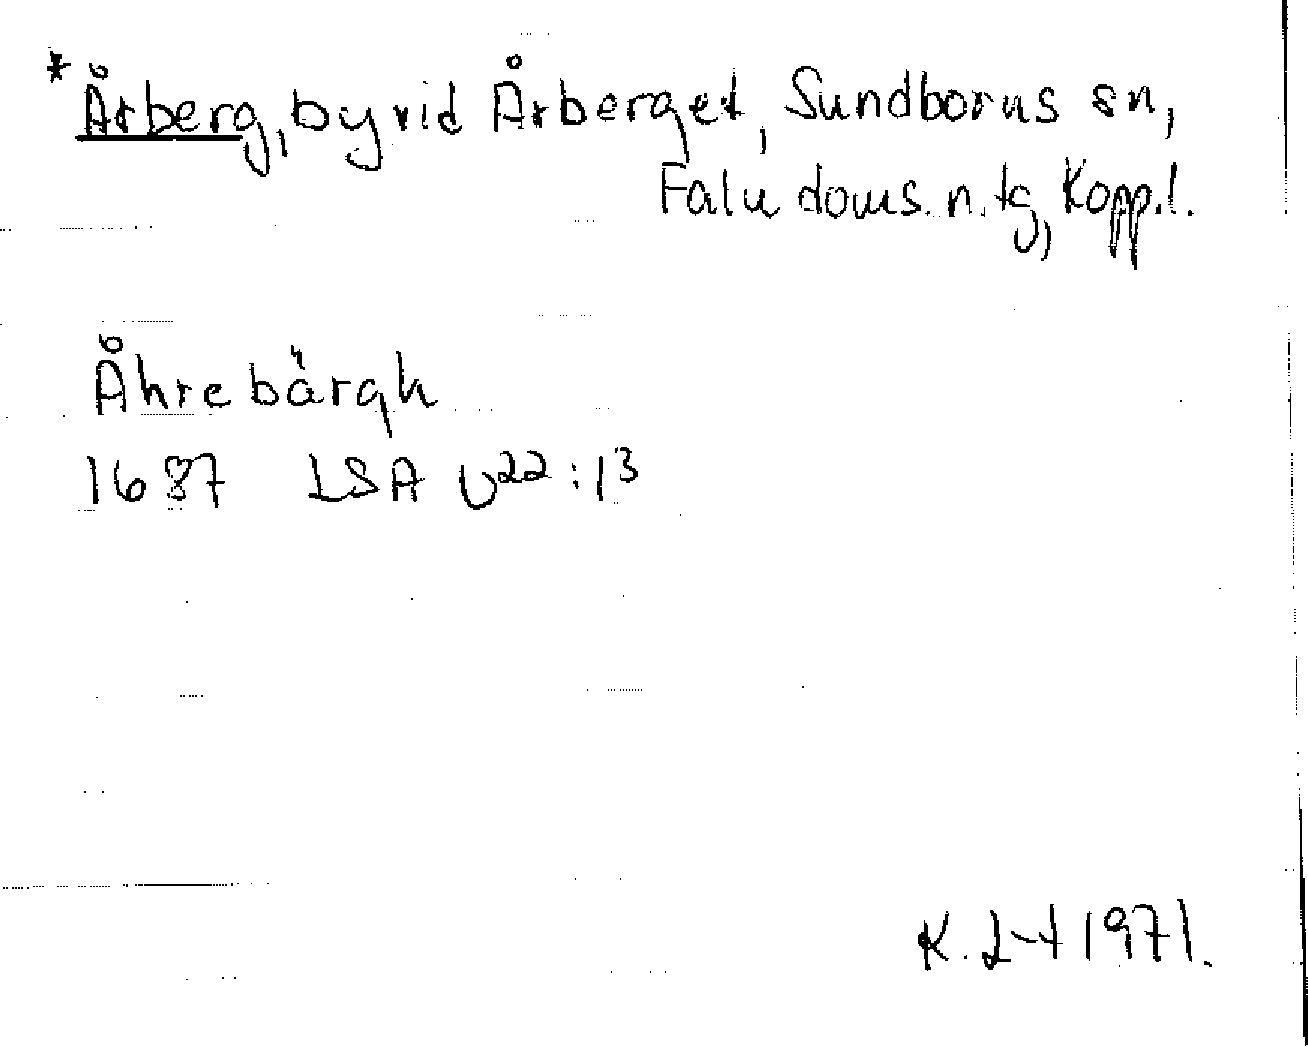 *Årberg, by vid Årberget, Sundborns sn,
Falu doms. n. tg, Kopp.l.
Åhrebärgh
1687 LSA U22:13
K. L-t 1971.